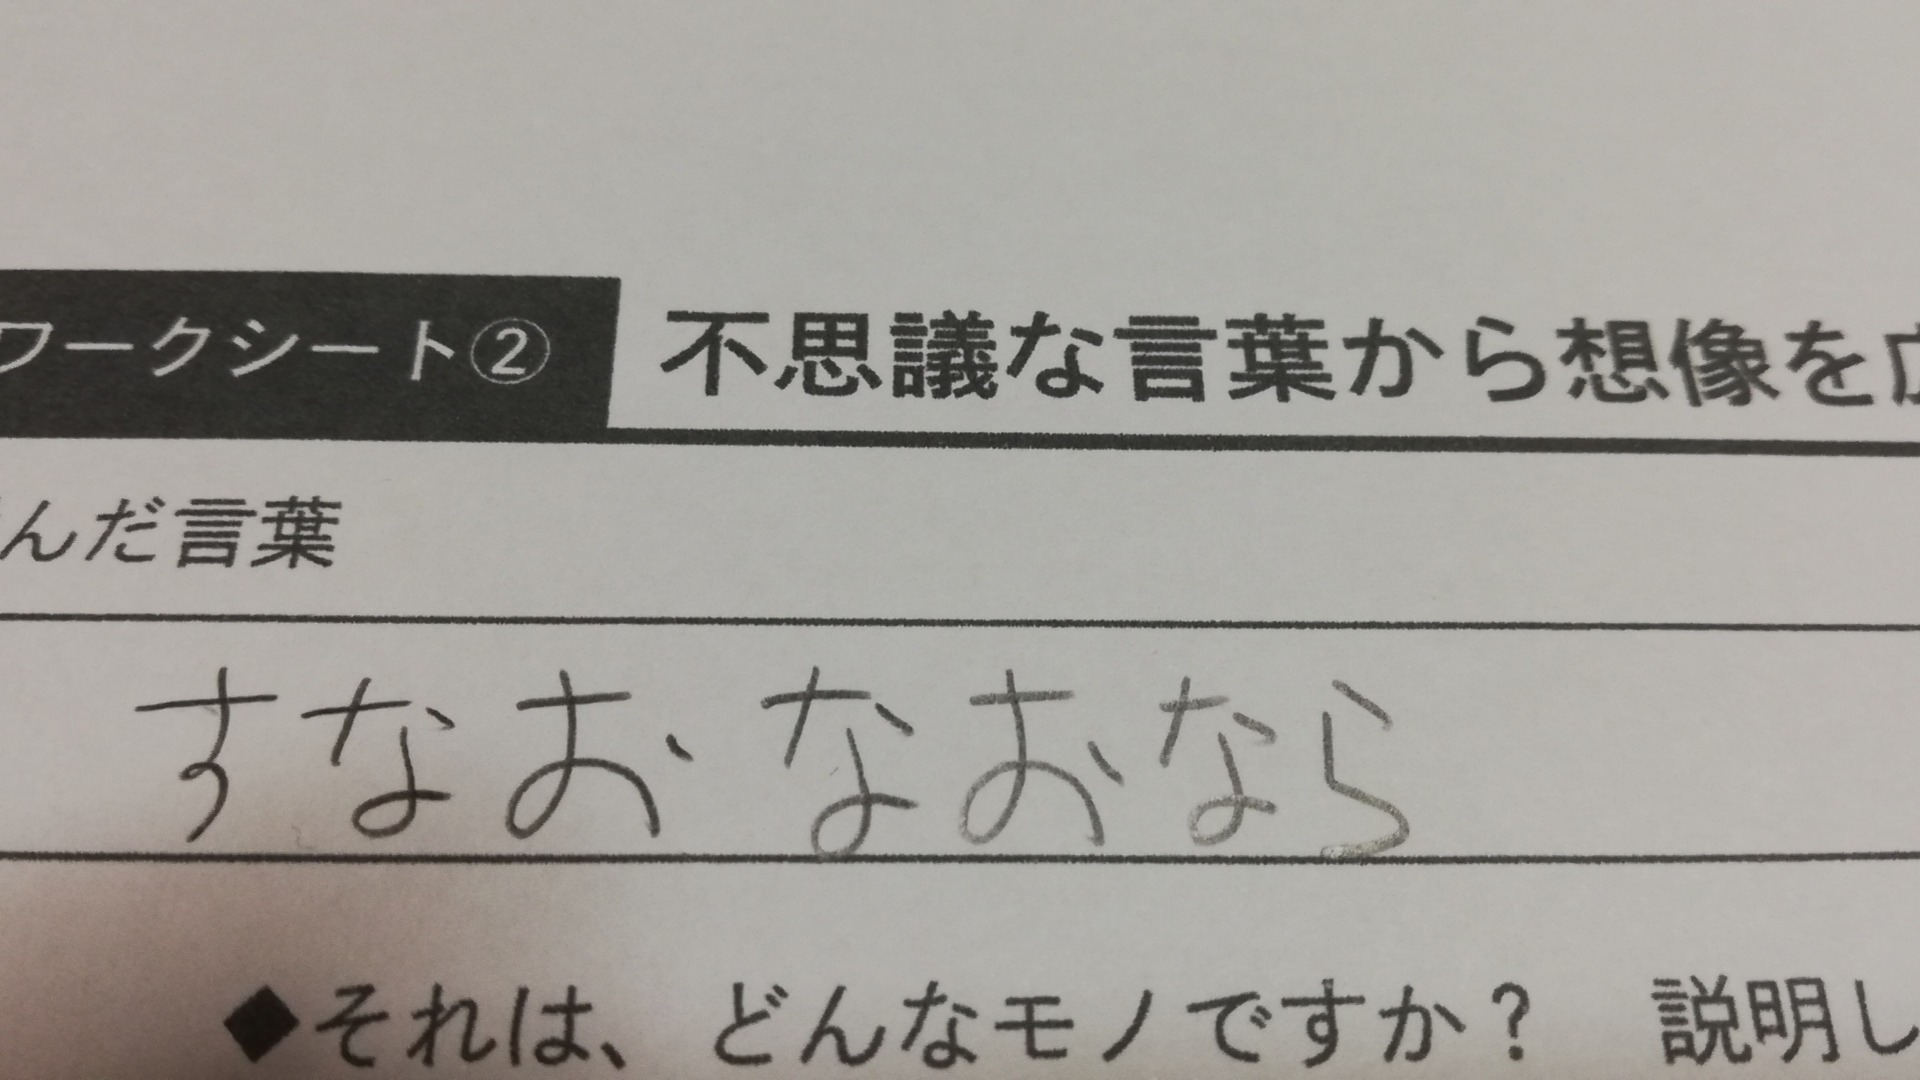 ワークシート② 不思議な言葉から想像を
んだ言葉
すなおなおなら
◆それは、どんなモノですか？ 説明し